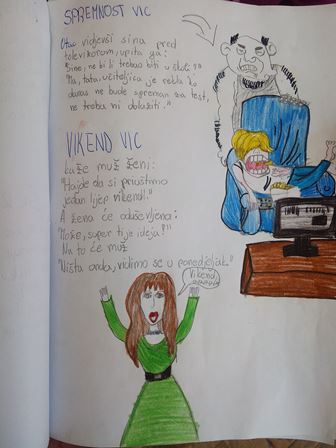 SPREMNOST VIC
Otac vidjevši sina pred
televizorom, upita ga:
"Sine, ne bi li trebao biti u školi?"
"Ma, tata, učiteljica je rekla ko
danas ne bude spreman za test,
ne treba ni dolaziti."
VIKEND VIC
Kaže muž ženi:
"Hajde da si priuštimo
jedan lijep vikend!"
A žena će oduševljena:
"Može, super ti je ideja!"
Na to će muž
"Ništa onda, vidimo se u ponedjeljak."
Vikend,